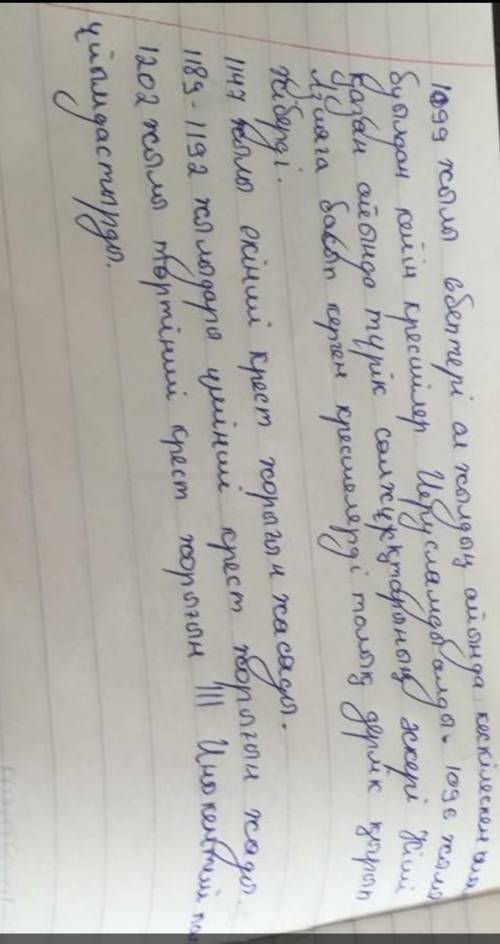 1099 жылы әбептері ай жылдың айында кескілескен ұлы
буылдан кейін кресшілер Иерусламды алды. 1096 жылы
қазан айында түрік сәлжұқтарының әскері Кіші
Азияға басып керген кресшелерді толық дерлік қырып
жіберді.
1147 жылы екінші крест жорығын жасады.
1189-1192 жылыдары үшінші крест жорығын жады.
1202 жылы төртінші крест жорығын III Инокентий
ұйымдастырды.